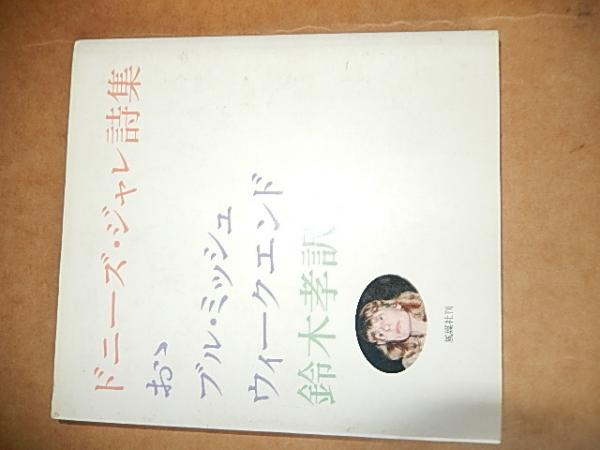 ドニーズ・ジャレ詩集
おゝ
ブル・ミッシュ
ウィークエンド
鈴木孝訳
風媒社刊